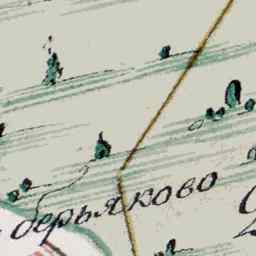 берьяково